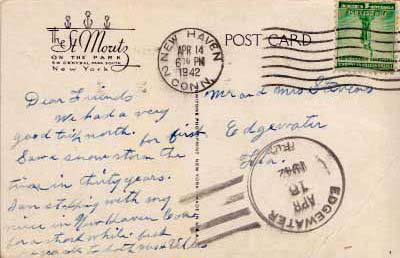 The St. Moritz
ON THE PARK
50 CENTRAL PARK SOUTH
New York
POST CARD
NEW HAVEN
APR 14
6 PM
1942
CONN.
Dear Friends
We had a very
good trip north. for first
Saw a snow storm the
time in thirty years.
Am stopping with my
niece in
for a short while. best
to both
Mr and Mrs Stevens
Edgewater
Fla.
EDGEWATER
APR
16
1942